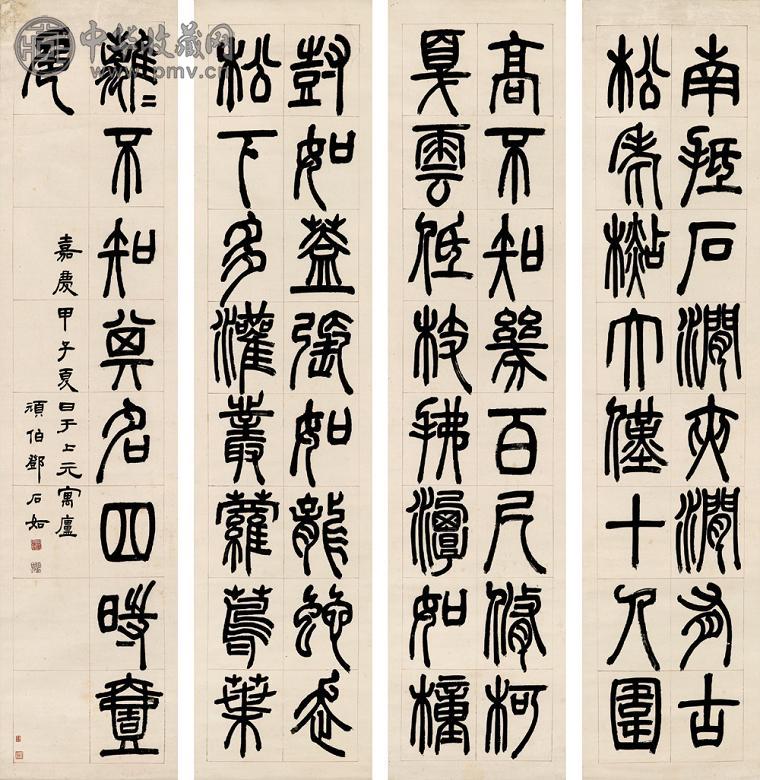 中华收藏网
www.pmv.cn
南抵石澗夾澗有古
松老檆大僅十人圍
高不知幾百尺脩柯
戛雲低枝拂潭如橦
尌如蓋張如龍蛇走
松下多灌叢蘿蔦葉
離〻不知其名四時壹
色
嘉慶甲子夏日于上元寓廬
頑伯鄧石如